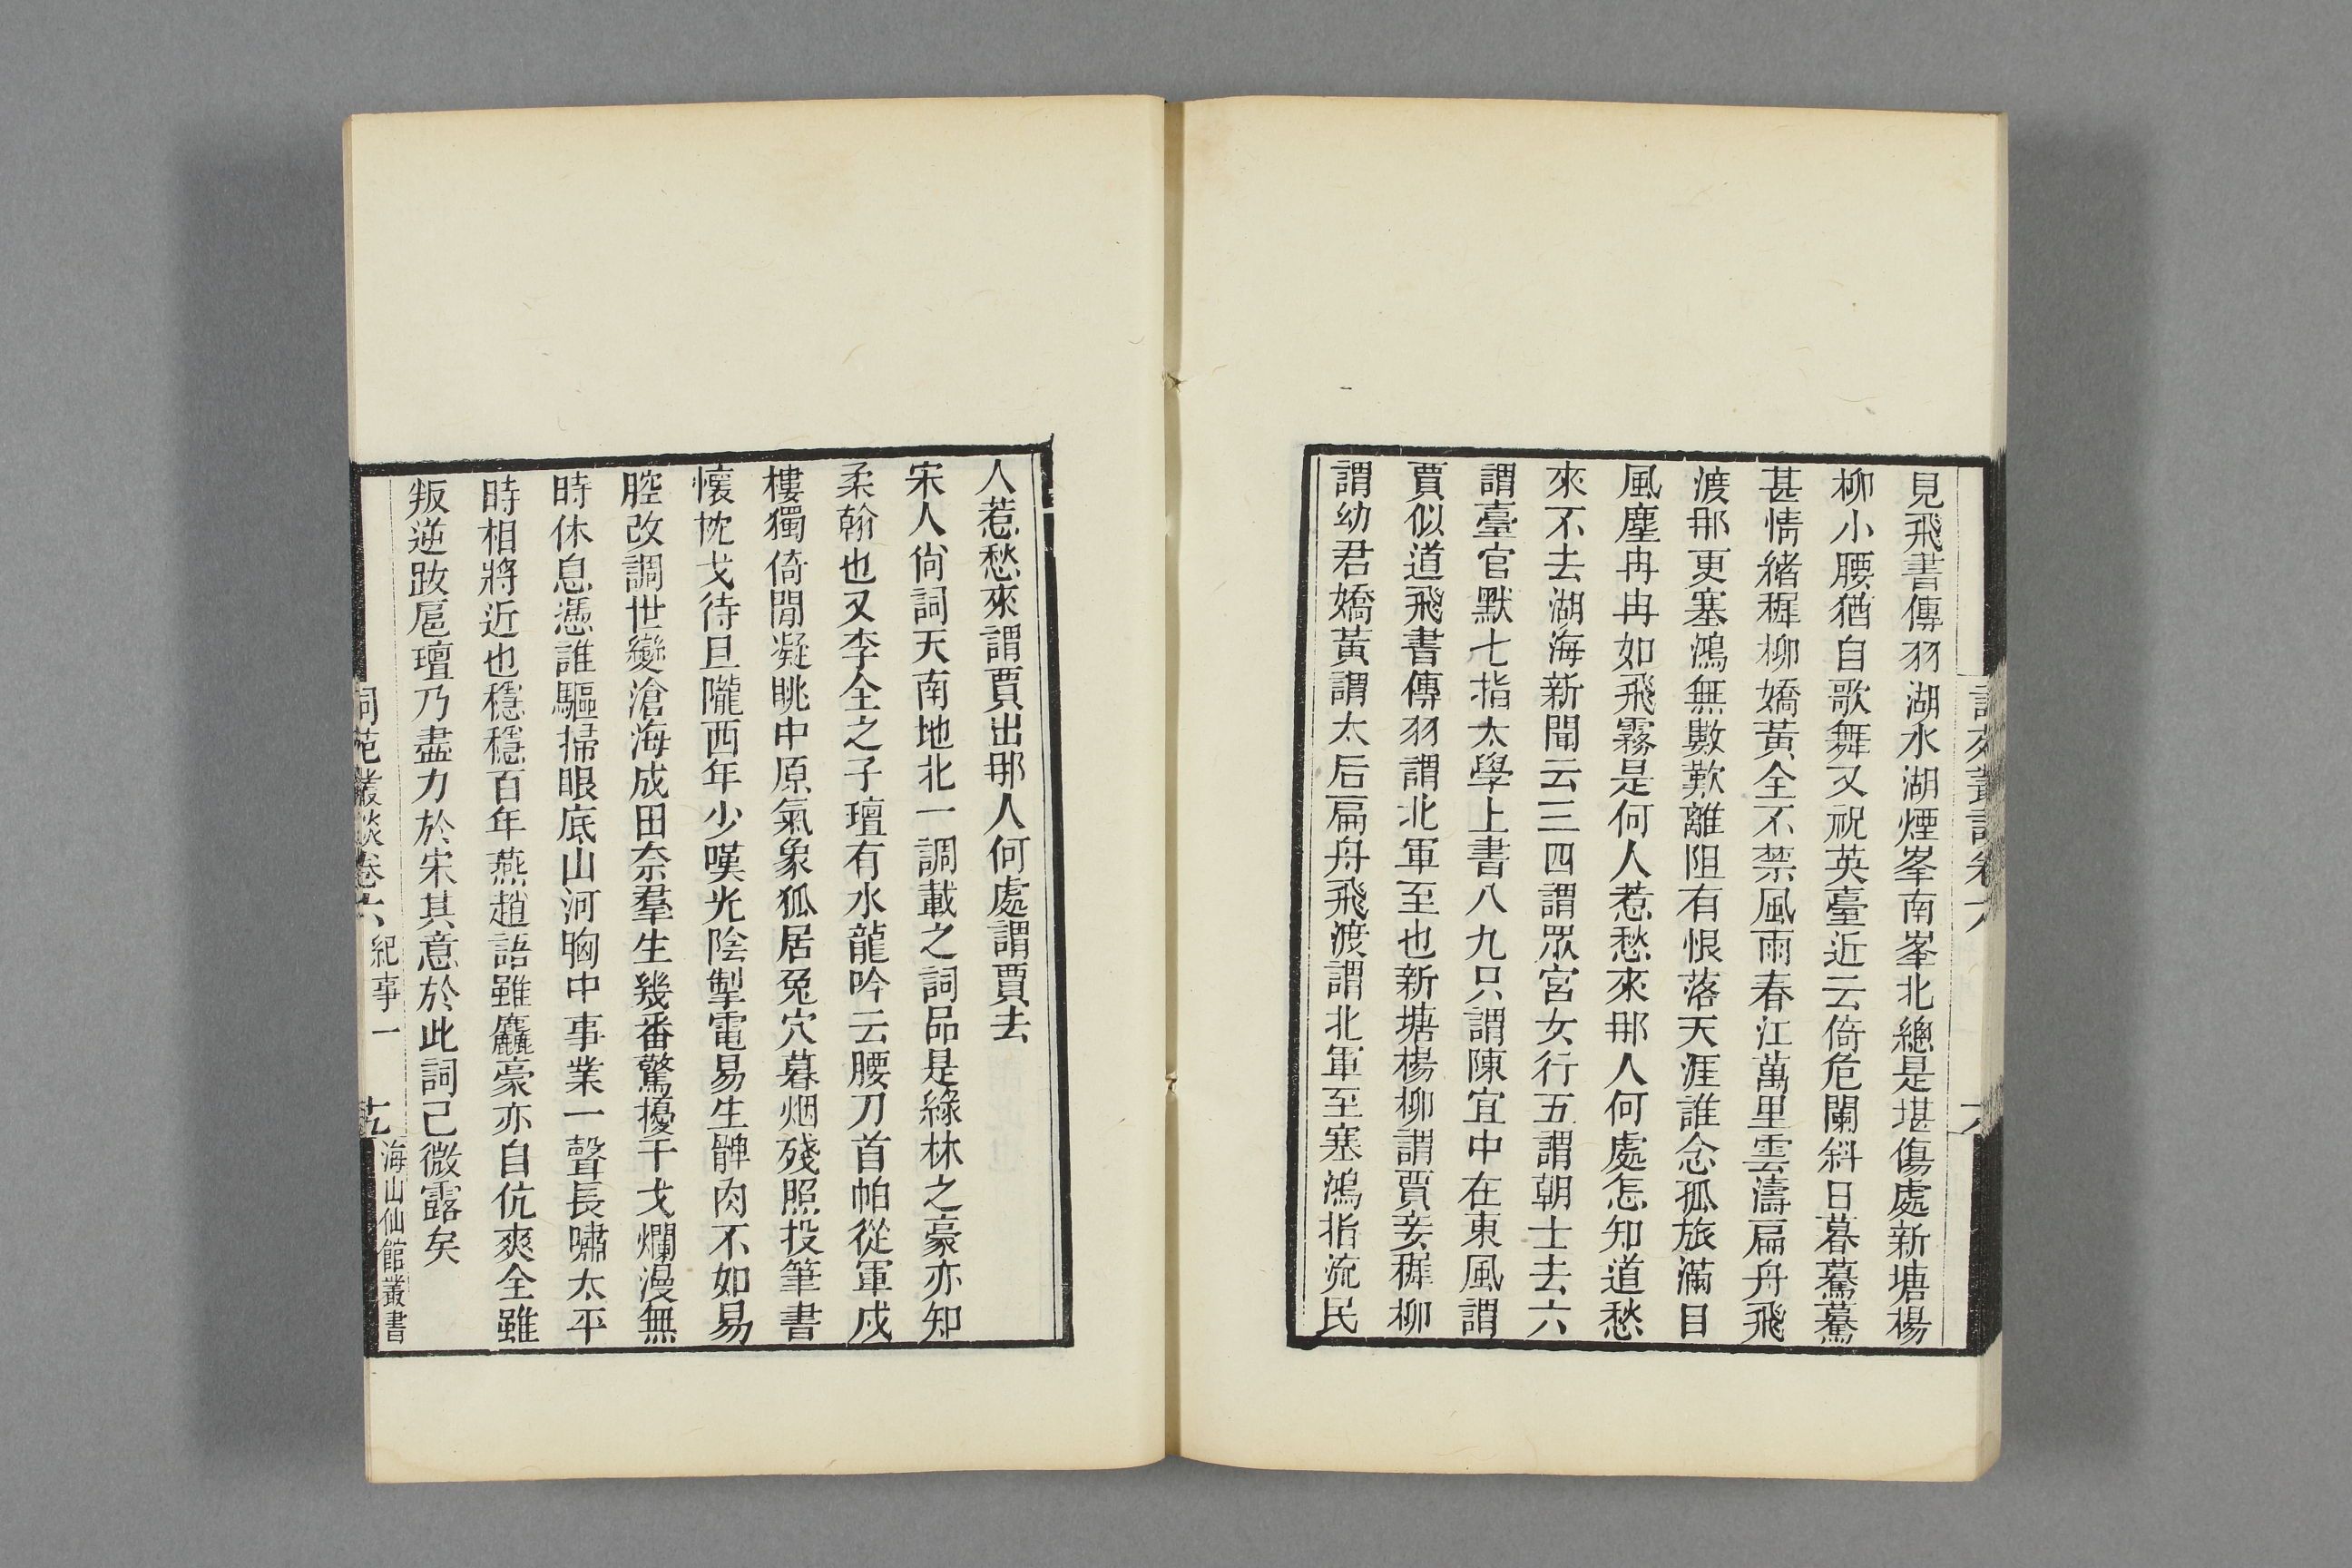 見飛書傳羽湖水湖煙峯南峯北總是堪傷處新塘楊
柳小腰猶自歌舞又祝英臺近云倚危闌斜日暮驀驀
甚情緒穉柳嬌黃全不禁風雨春江萬里雲濤扁舟飛
渡那更塞鴻無數歎離阻有恨落天涯誰念孤旅滿目
風塵冉冉如飛霧是何人惹愁來那人何處怎知道愁
來不去湖海新聞云三四謂眾宮女行五謂朝士去六
謂臺官默七指太學上書八九只謂陳宜中在東風謂
賈似道飛書傳羽謂北軍至也新塘楊柳謂賈妾穉柳
謂幼君嬌黃謂太后扁舟飛渡謂北軍至塞鴻指流民
人惹愁來謂賈出那人何處謂賈去
宋人尙詞天南地北一調載之詞品是綠林之豪亦知
柔翰也又李全之子璮有水龍吟云腰刀首帕從軍戍
樓獨倚閒凝眺中原氣象狐居兔穴暮烟殘照投筆書
懷枕戈待旦隴西年少嘆光陰掣電易生髀肉不如易
腔改調世變滄海成田奈羣生幾番驚擾干戈爛漫無
時休息憑誰驅掃眼底山河胸中事業一聲長嘯太平
時相將近也穩穩百年燕趙語雖麤豪亦自伉爽全雖
叛逆跋扈璮乃盡力於宋其意於此詞已微露矣
詞苑叢談卷六 紀事一 十九 海山仙館叢書